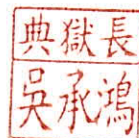 典獄長
吳承鴻